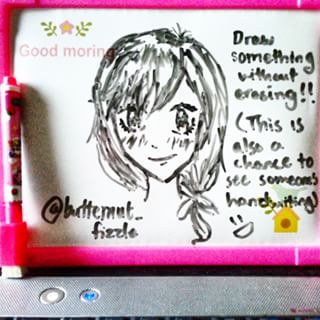 Good moring
Draw
something
without
erasing!!
(This is
also a
chance to
see someone's
handwriting)
@butternut_
fizzle